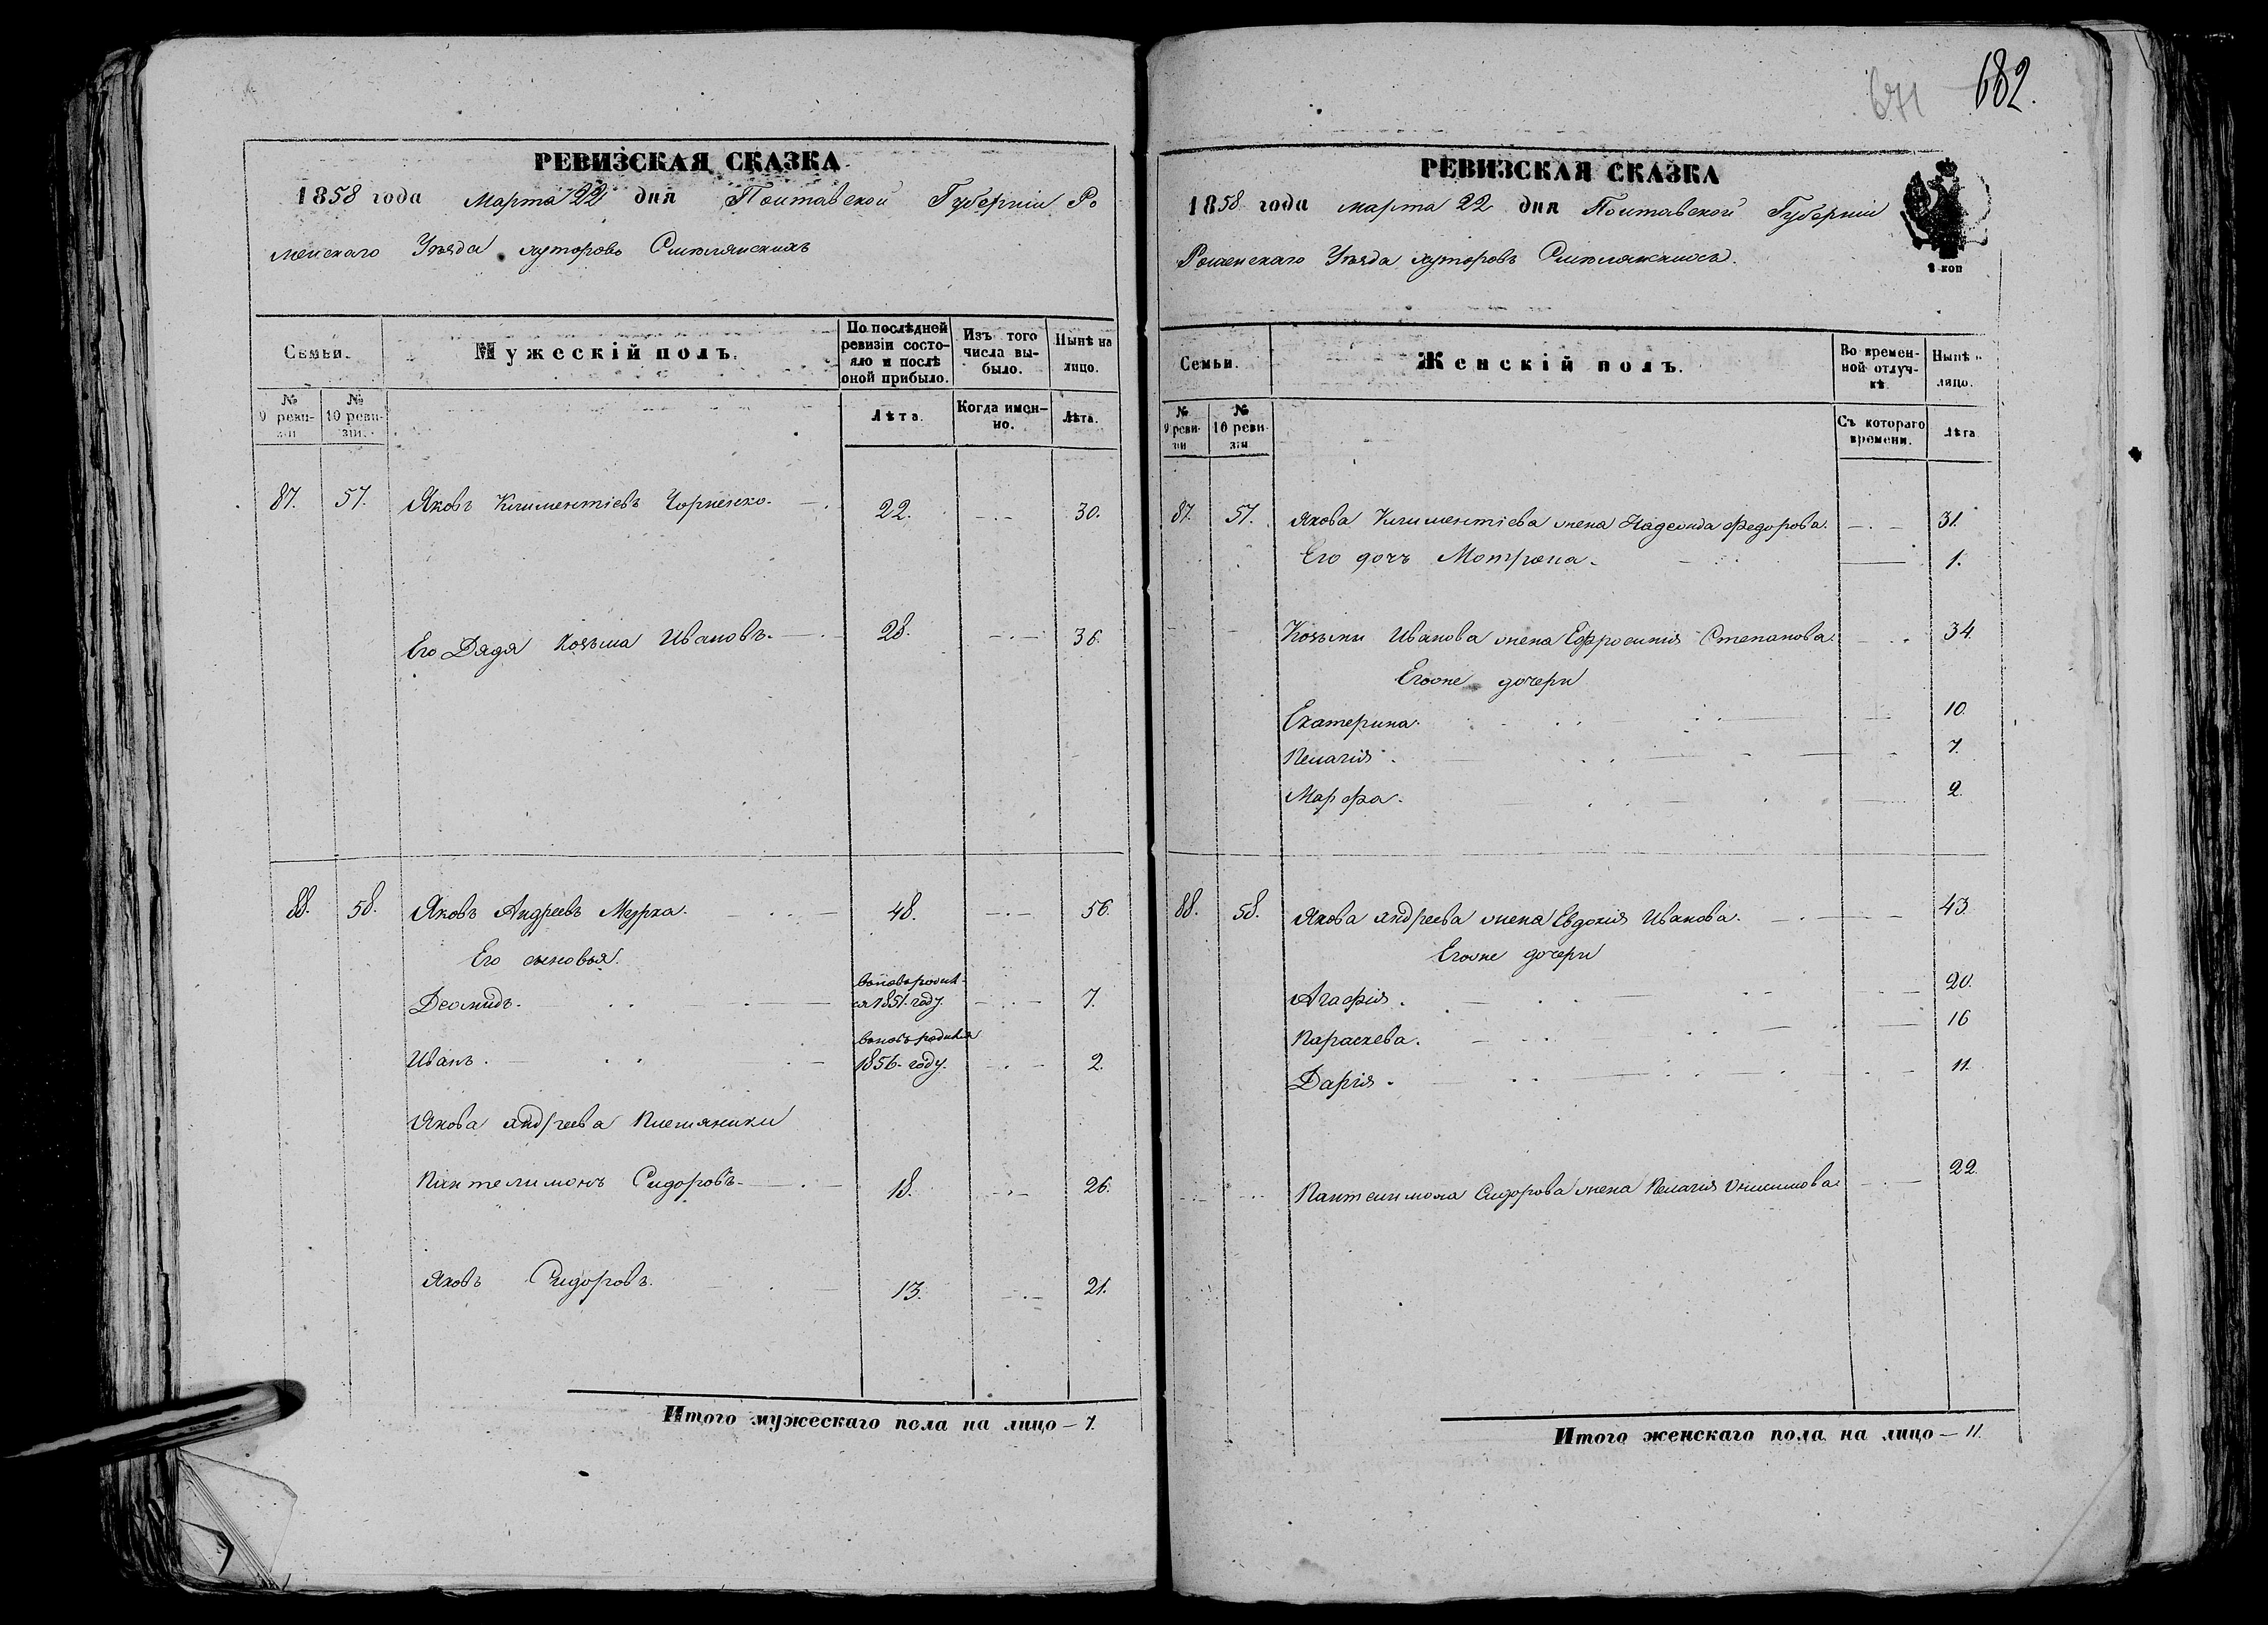 РЕВИЗСКАЯ СКАЗКА
1858 года Марта 22 дня Полтавской Губерніи Ро
менскаго Уѣзда хуторовъ
Семьи.
Мужескій полъ.
По послѣдней ревизіи состояло и послѣ оной прибыло.
Изъ того числа выбыло.
Нынѣ на лицо.
№ 9 ревизіи
№ 10 ревизіи.
Лѣта.
Когда именно.
Лѣта.
87. 57. Яковъ Климентіевъ Чорненко. 22. 30.
Его Дядя Козьма Ивановъ. 28. 36.
88. 58. Яковъ Андреевъ Мурха. 48. 56.
Его сыновья.
Деомидъ. 1851 году 7.
Иванъ. 1856 году. 2.
Якова Андреева Племяники
Пантелимонъ Сидоровъ 18. 26.
Яковъ Сидоровъ. 13. 21.
Итого мужескаго пола на лицо — 7.
671 682.
РЕВИЗСКАЯ СКАЗКА
1858 года марта 22 дня Полтавской Губерніи
Роменскаго Уѣзда хуторовъ
коп
Семьи.
Женскій полъ.
Во временной отлучкѣ.
Нынѣ на лицо.
№ 9 ревизіи
№ 10 ревизіи
Съ котораго времени.
Лѣта
87. 57. Якова Климентіева жена Надежда Федорова. 31.
Его дочь Мотрона. 1.
Козьмы Иванова жена Ефросинія Степанова. 34.
Егоже дочери
Екатерина. 10.
Пелагія. 7.
Марфа. 2.
88. 58. Якова Андреева жена Евдокія Иванова. 43.
Егоже дочери
Агафія. 20.
Параскева. 16
Дарія. 11.
Пантелимона Сидорова жена Пелагія Онисимова. 22.
Итого женскаго пола на лицо — 11.